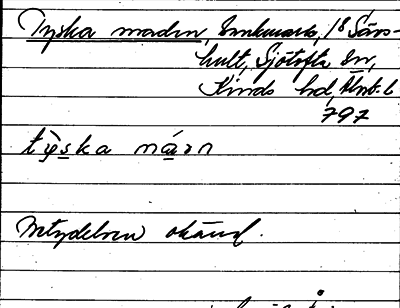 Tyska maden, Enkmark, 18 Särs-
hult, Sjötofta sn,
Kinds hd, Älvsb. l
797
tỳs̲ka má̲rn
Betydelsen okänd.